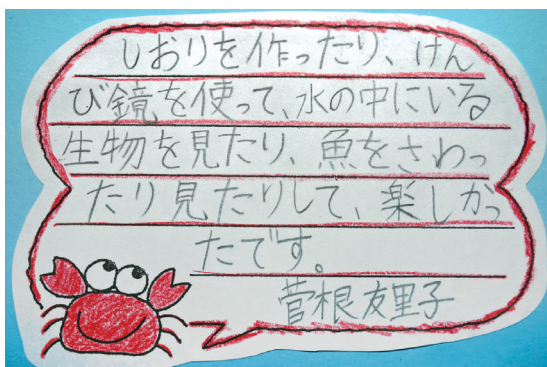 しおりを作ったり、けん
び鏡を使って、水の中にいる
生物を見たり、魚をさわっ
たり見たりして、楽しかっ
たです。
菅根友里子